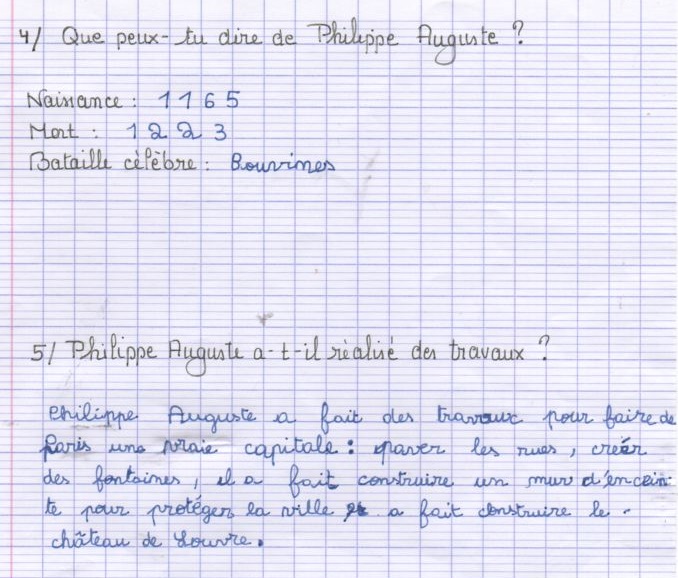 4/ Que peux-tu dire de Philippe Auguste ?
Naissance : 1165
Mort : 1223
Bataille célèbre : Bouvines
5/ Philippe Auguste a-t-il réalisé des travaux ?
Philippe Auguste a fait des travaux pour faire de
Paris une vraie capitale : paver les rues, créer
des fontaines, il a fait construire un mur d'encein-
te pour protéger la ville et a fait construire le
château de Louvre.